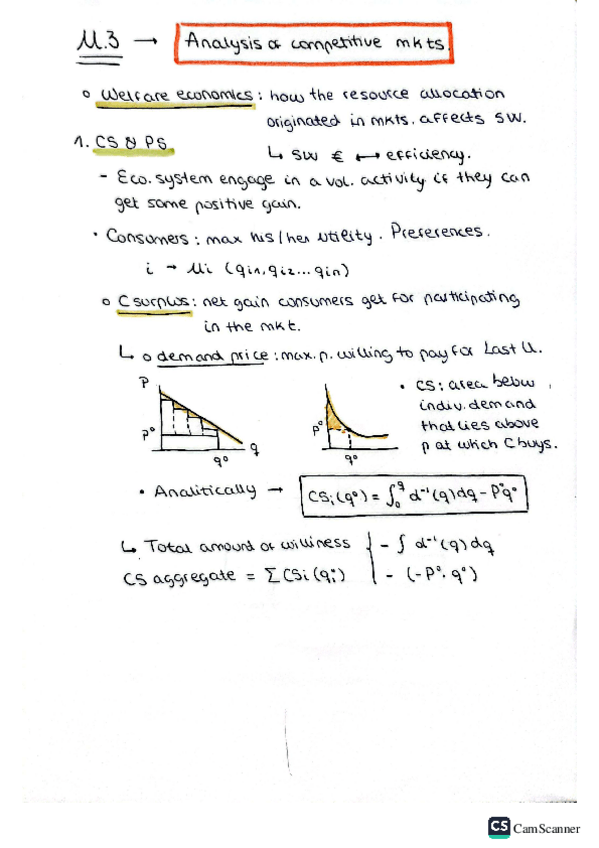 U.3 → Analysis of competitive mkts.
○ Welfare economics: how the resource allocation
originated in mkts. affects SW.
1. CS & PS
↳ SW € ↔ efficiency.
- Eco. system engage in a vol. activity if they can
get some positive gain.
• Consumers: max his/her utility. Preferences.
i → Ui (qi1, qi2 ... qin)
○ C surplus: net gain consumers get for participating
in the mkt.
↳ ○ demand price: max. p. willing to pay for last U.
P
P°
q°
q
P°
q°
• CS: area below
indiv. demand
that lies above
p at which C buys.
• Analitically → CSi(q°) = ∫₀^q d⁻¹(q)dq - P°q°
↳ Total amount of williness
- ∫ d⁻¹(q)dq
CS aggregate = Σ CSi (qi°)
- (-P°. q°)
CS CamScanner